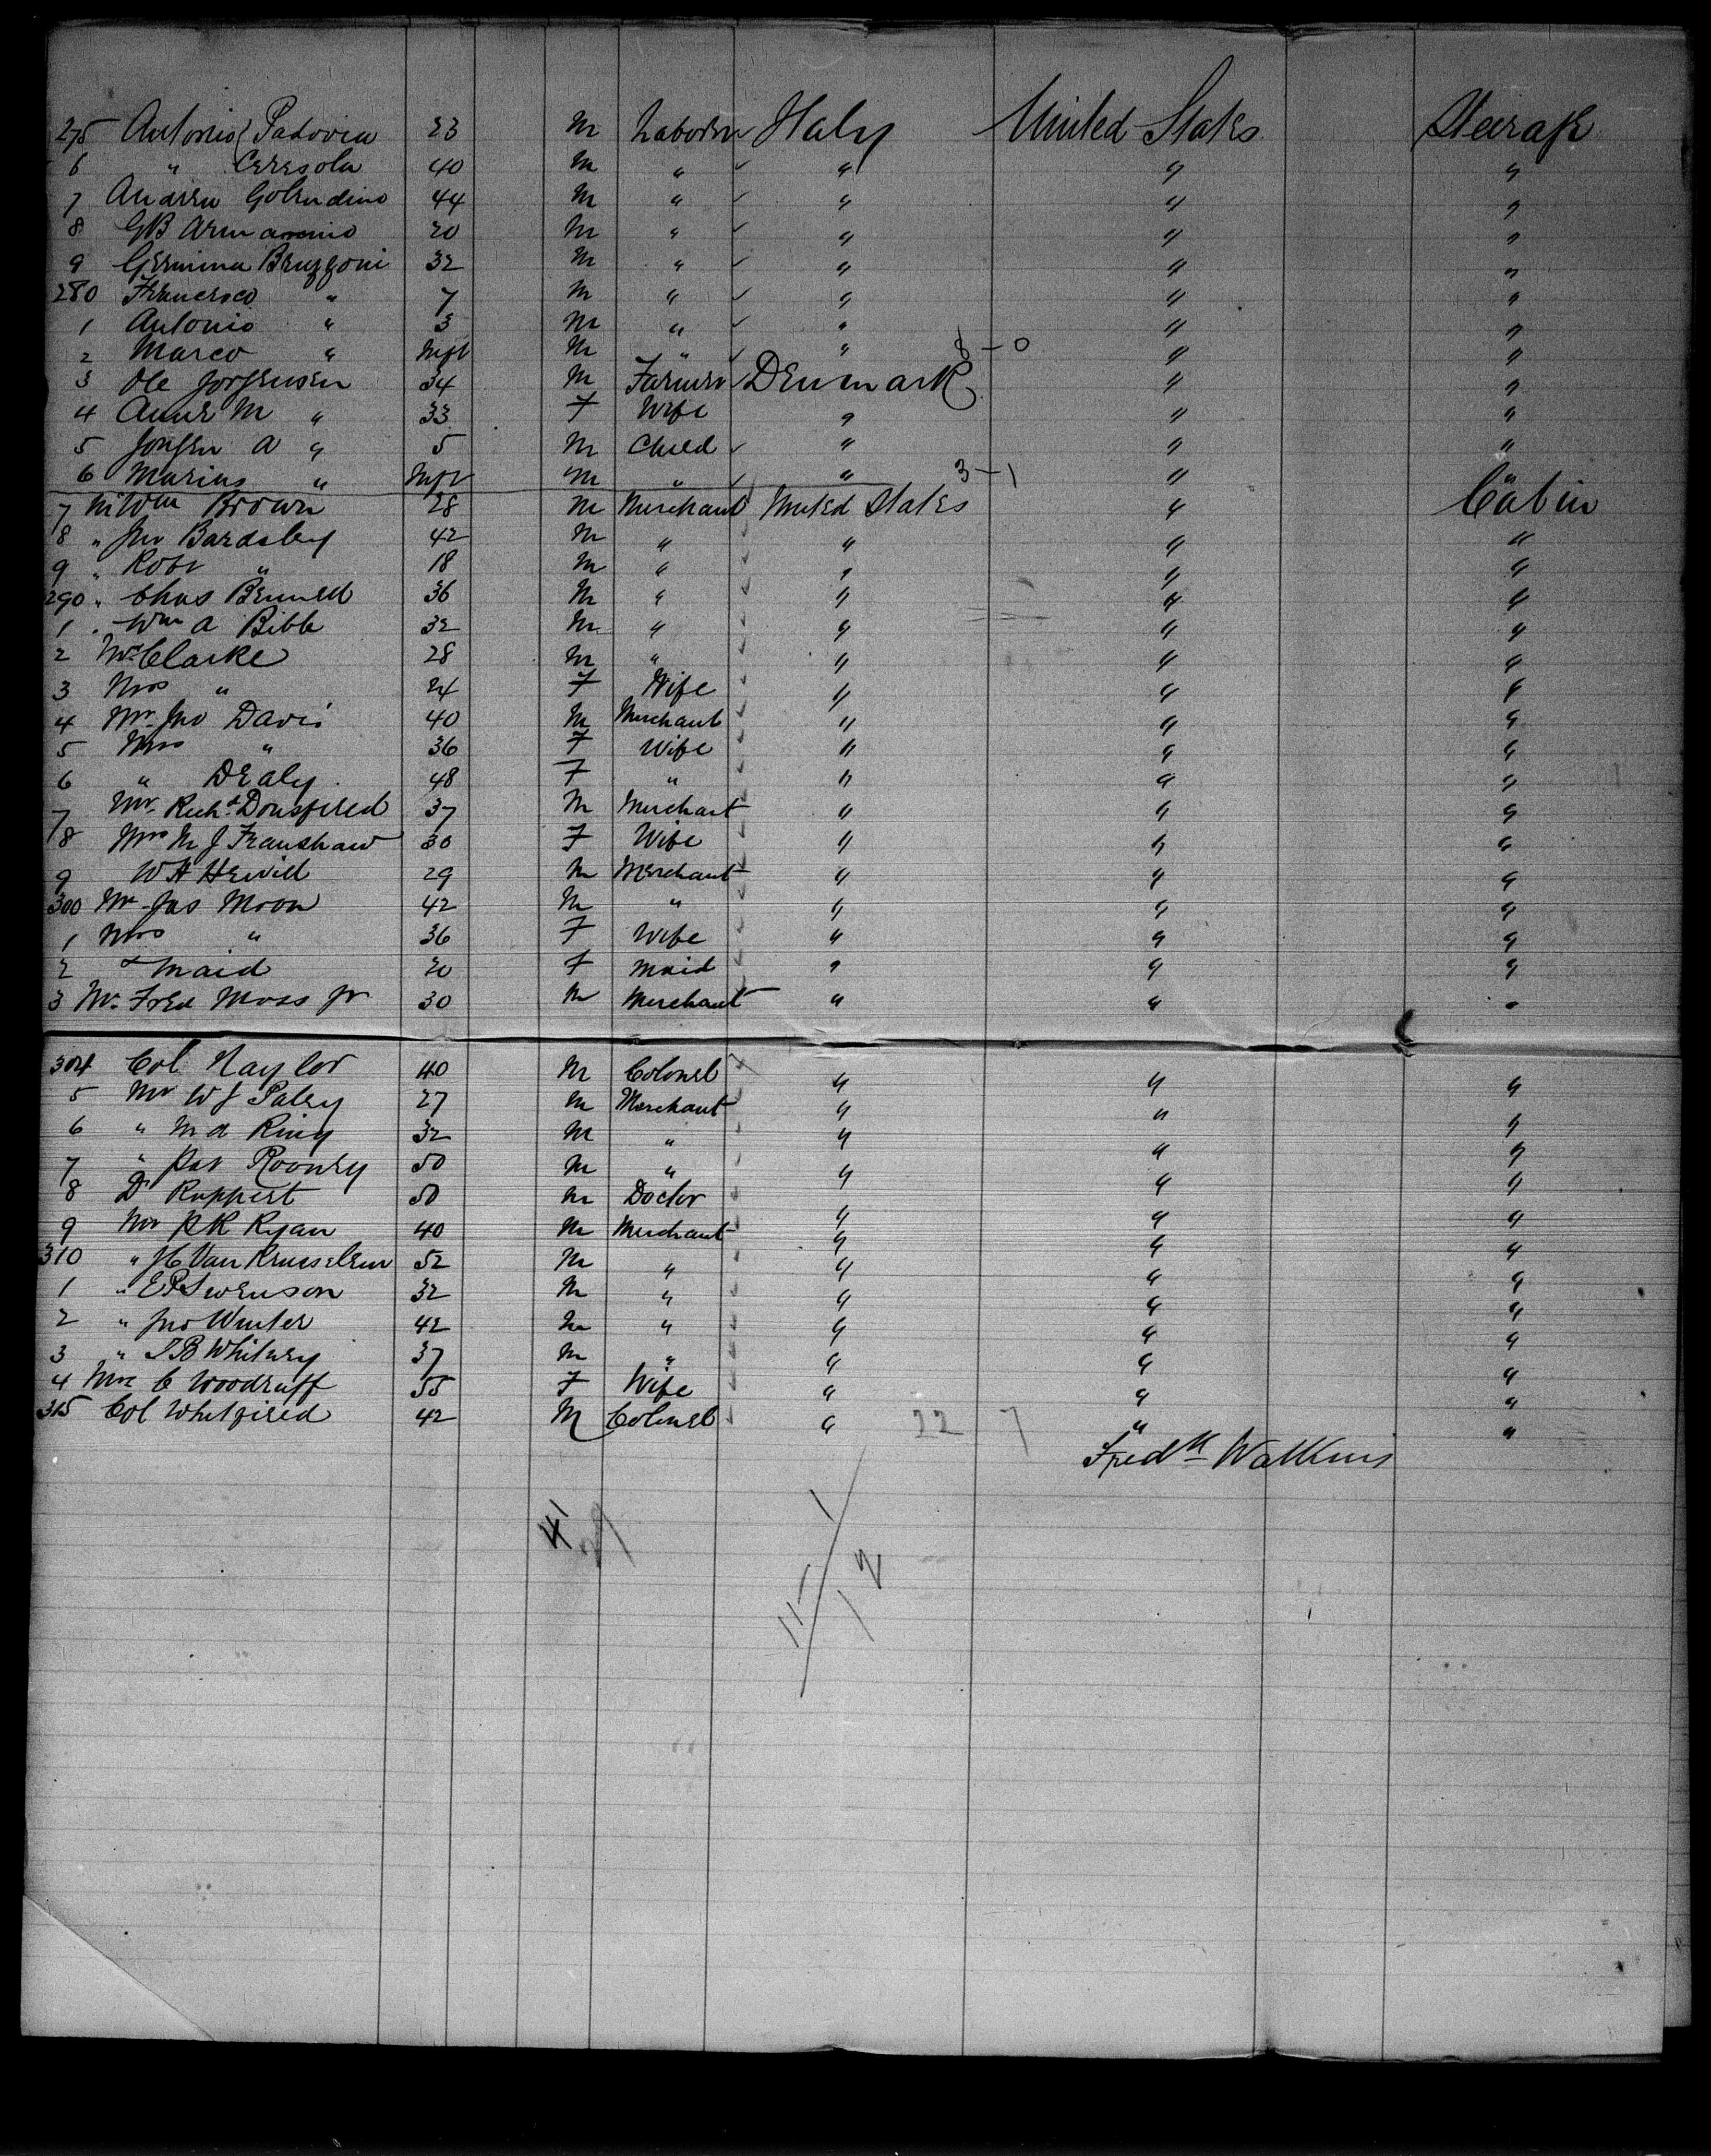 275 Antonio Padovia 23 M Laborer Italy United States Steerage
6 " Ceresola 40 M " " " "
7 Andrea 44 M " " " "
8 GB 20 M " " " "
9 Gemima Bruzzoni 32 M " " " "
280 Francisco " 7 M " " " "
1 Antonio " 3 M " " " "
2 Marco " Inft M " " 8-0 " "
3 Ole Jorgensen 34 M Farmer Denmark " "
4 Anne M " 33 F Wife " " "
5 Jorgen A " 5 M Child " " "
6 Marius " Inft M " " 3-1 " "
7 Mr Wm Brown 28 M Merchant United States " Cabin
8 " Jno Bardsley 42 M " " " "
9 " Robt " 18 M " " " "
290 " Chas Bennett 36 M " " " "
1 " Wm A Bibb 32 M " " " "
2 Mr Clarke 28 M " " " "
3 Mrs " 24 F Wife " " "
4 Mr Jno Davis 40 M Merchant " " "
5 Mrs " 36 F Wife " " "
6 " Dealy 48 F " " " "
7 Mr Richd Dousfield 37 M Merchant " " "
8 Mrs M J Franshaw 30 F Wife " " "
9 W H Hewitt 29 M Merchant " " "
300 Mr Jas Moon 42 M " " " "
1 Mrs " 36 F Wife " " "
2 & Maid 20 F Maid " " "
3 Mr Fred Moss Jr 30 M Merchant " " "
304 Col Naylor 40 M Colonel " " "
5 Mr W J Paley 27 M Merchant " " "
6 " M A Ring 32 M " " " "
7 " Pat Rooney 50 M " " " "
8 Dr Ruppert 50 M Doctor " " "
9 Mr P R Ryan 40 M Merchant " " "
310 " J C Van 52 M " " " "
1 " E P Swenson 32 M " " " "
2 " Jno Winter 42 M " " " "
3 " J B Whitney 37 M " " " "
4 Mrs C Woodruff 55 F Wife " " "
315 Col Whitfield 42 M Colonel " 22 7 " "
Fredk Watkins
41
11 1
12